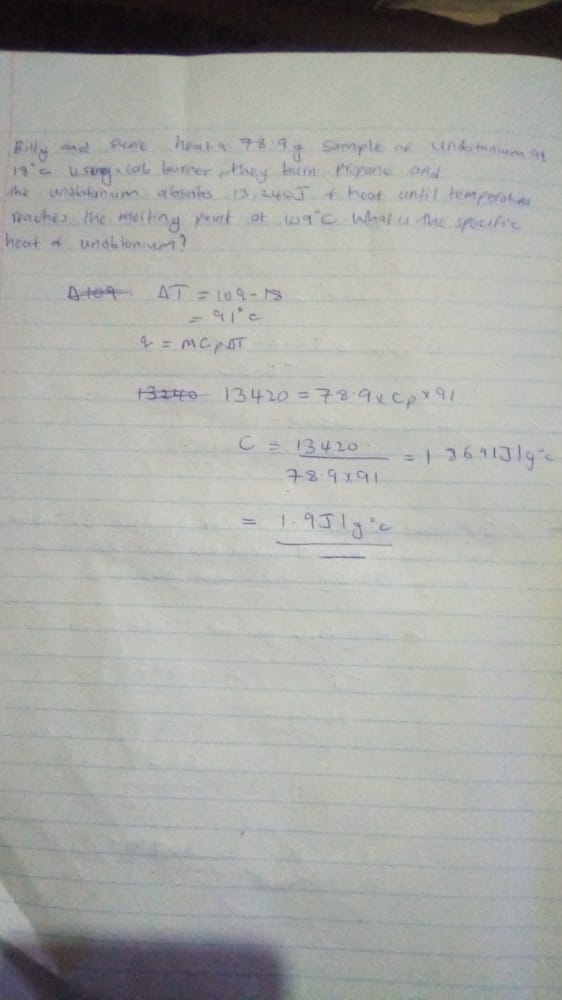 Billy and heat a 78.9g sample of undotunium at
18°C using a lab burner, they burn propane and
the absorbs 13,240J of heat until temperature
reaches the melting point at 109°C. What is the specific
heat of unobtonium?
Δ109 ΔT = 109-18
= 91°C
q = MCpΔT
13240 13420 = 78.9 x Cp x 91
C = 13420 = 1.8691J/g°C
78.9x91
= 1.9J/g°C